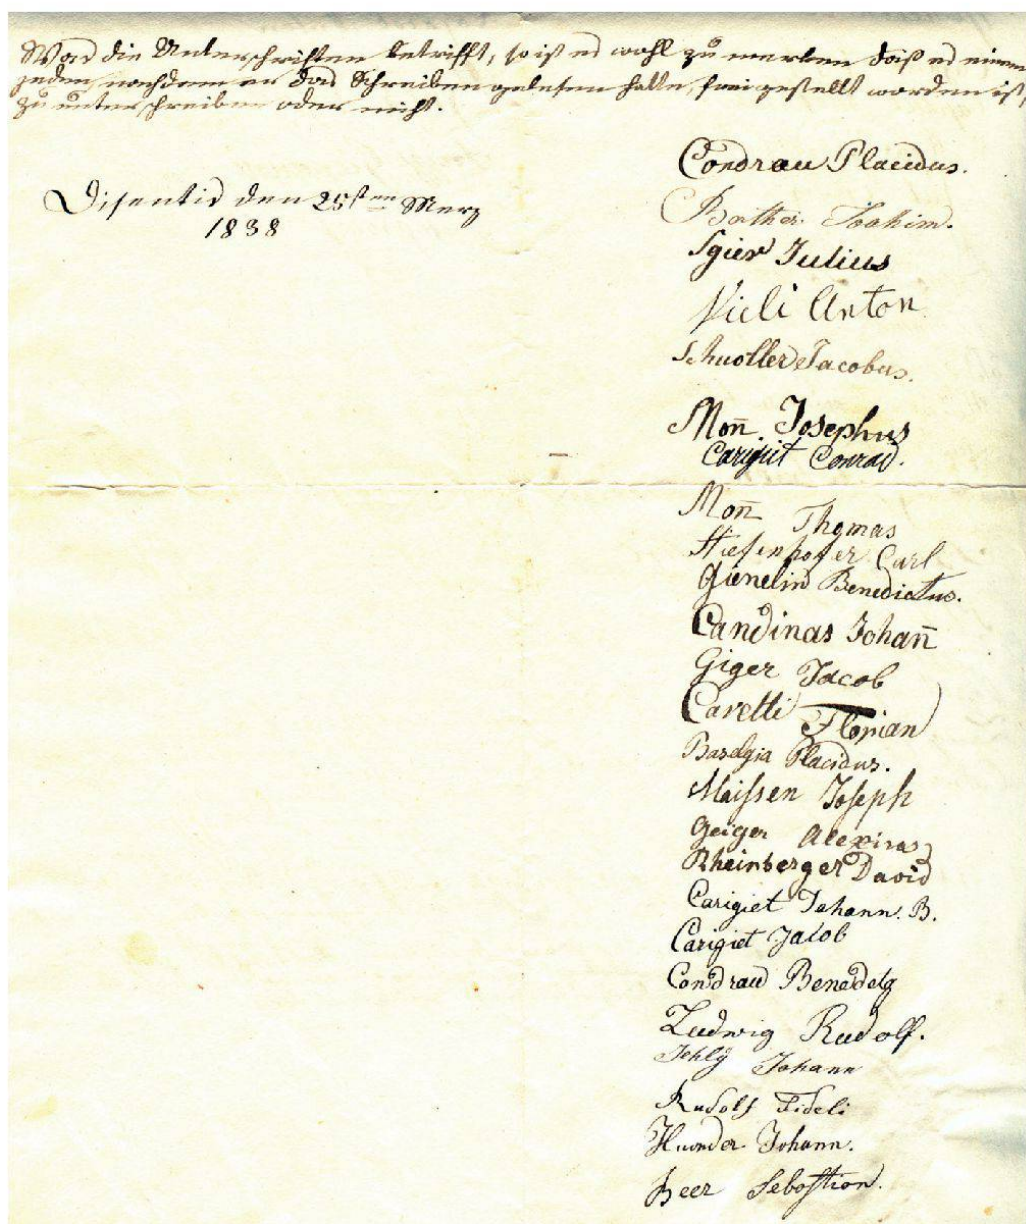 Was die Unterschriften betrifft, so ist es wohl zu merken daß es einem
jeden, nachdem er das Schreiben gelesen hatte, frei gestellt worden ist,
zu unterschreiben oder nicht.
Disentis den 25sten Merz
1838
Condrau Placidus.
Berther Joahim.
Sgier Julius
Vieli Anton
Schuoller Jacobus.
Mon̄. Josephus
Carigiet Conrad.
Mon̄ Thomas
Stiefenhofer Carl
Gienelin Benedictus.
Candinas Johan̄
Giger Jacob
Caretti Florian
Baselgia Placidus.
Maissen Joseph
Geiger
Rheinberger David
Carigiet Johann. B.
Carigiet Jakob
Condrau
Ludwig Rudolf.
Jehly Johann
Rudolf Fideli
Huonder Johann.
Beer Sebastion.